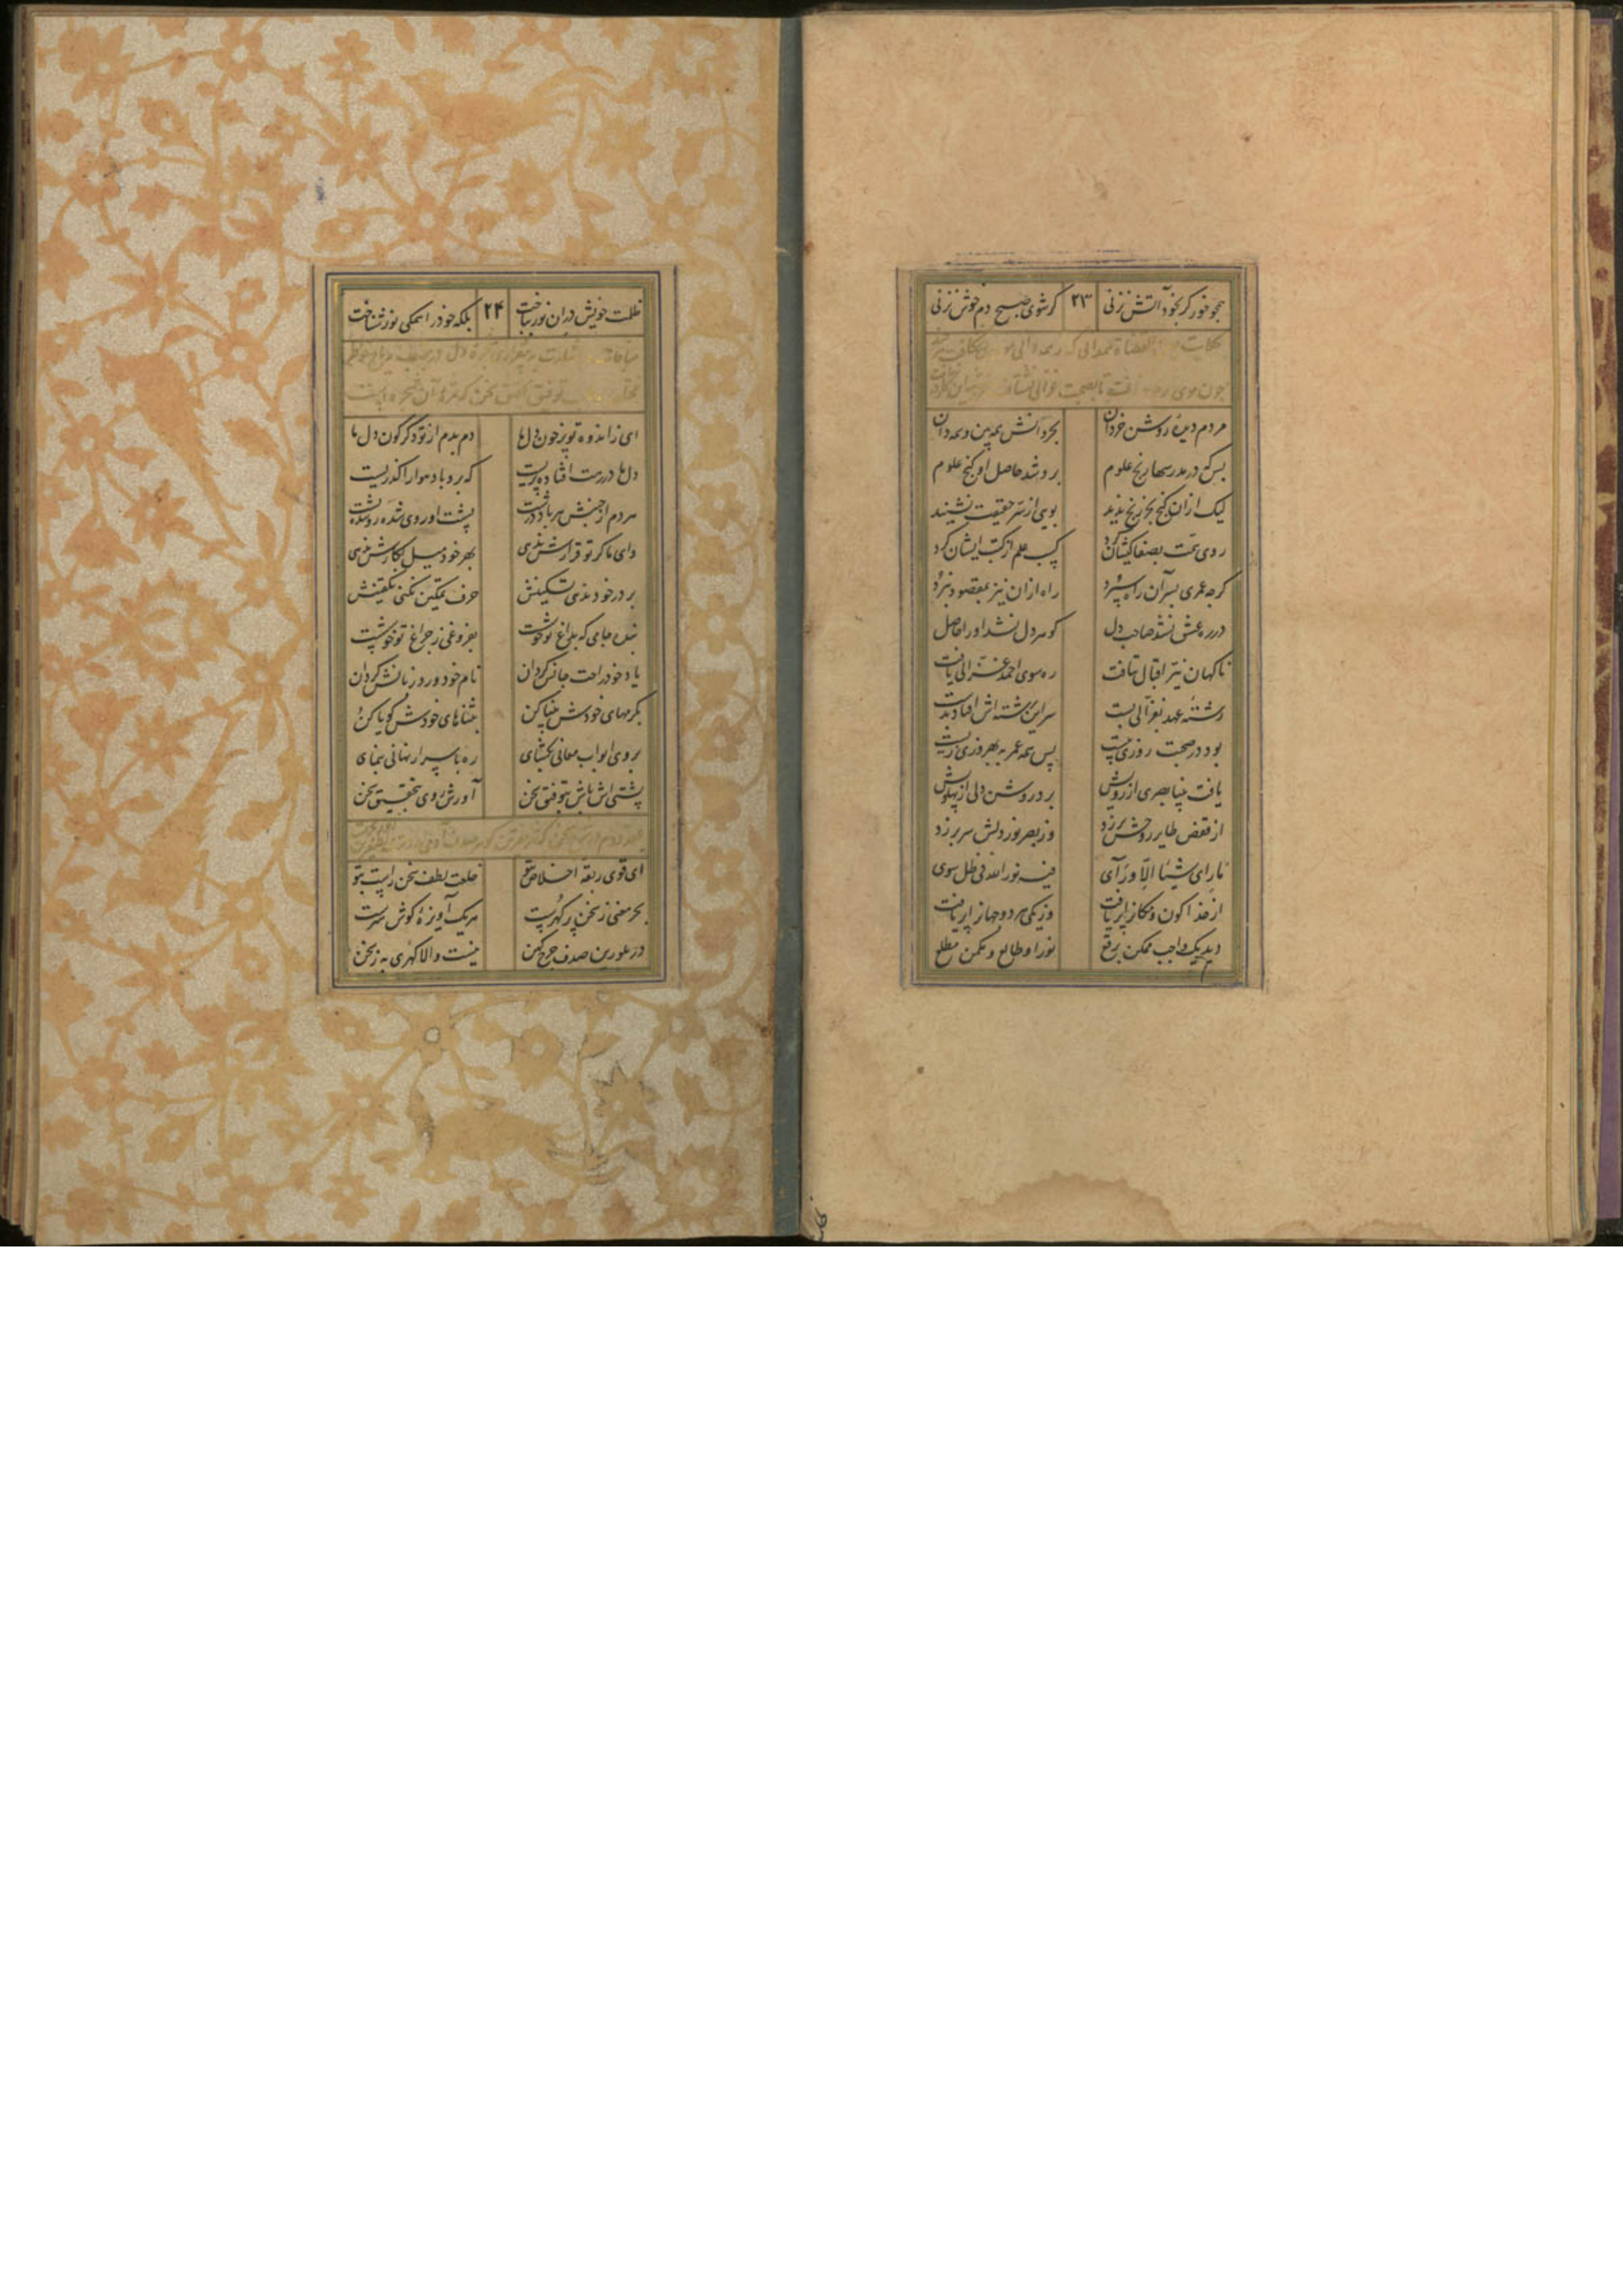 همچو خور گر بخود آتش نزنی ۲۳ گر شوی صبح دم خوش نزنی
حکایت القضاة همدانی که
چون موی تا بصحبت غزالی نشتافت
مردم دیده روشن خردان بخرد دانش همه بین و همه دان
بس که در مدرسها رنج علوم برد و شد حاصل او گنج علوم
لیک ازان گنج بجز رنج ندید بویی از سر حقیقت نشنید
روی همت بصفا کیشان کرد کسب علم از کتب ایشان کرد
گرچه عمری بسر آن راه سپرد راه ازان نیز بمقصود نبرد
در ره عشق نشد صاحب دل گوهر دل نشد او را حاصل
ناگهان نیر اقبال بتافت ره سوی احمد غزالی یافت
رشته عهد بغزالی بست سر این رشته اش افتاد بدست
بود در صحبت او روزی بیست پس همه عمر به بهروزی زیست
یافت بینا بصری از رویش برد روشن دلی از پهلویش
از قفص طایر روحش پر زد وز بصر نور دلش سر بر زد
ما رای شیئا الا ورآی فیه نور الله فی ظل سوی
از خدا کون و مکان را پر یافت وز یکی هر دو جهان را پر یافت
دید یک واجب و ممکن برقع نور او طالع و ممکن مطلع
ظلمت خویش دران نور بباخت ۲۴ بلکه خود را همگی نور شناخت
مناجات دل
توفیق سخن
ای ز اندوه تو پر خون دل ما دم بدم از تو دگرگون دل ما
دل ما در رهت افتاده پریست که برو باد هوا را گذریست
هر دم از جنبش هر باد درشت پشت او روی شده روی شده پشت
وای ما گر تو قرارش ندهی بهر خود میل بکارش ندهی
بر در خود ندهی تسکینش حرف تمکین نکنی تلقینش
بنده جامی که بداغ تو خوشست بفروغی ز چراغ تو خوشست
یاد خود راحت جانش گردان نام خود ورد زبانش گردان
بکرمهای خودش بینا کن بثناهای خودش گویا کن
بروی ابواب معانی بگشای ره باسرار نهانی بنمای
پشتی اش باش بتوفیق سخن آورش روی بتحقیق سخن
عقد دوم در سخن
ای قوی ربقه اخلاص بتو خلعت لطف سخن راست بتو
بحر معنی ز سخن پر گهرست هر یک آویزه گوش هنرست
در علورین صدف چرخ کهن نیست والا گهری به ز سخن